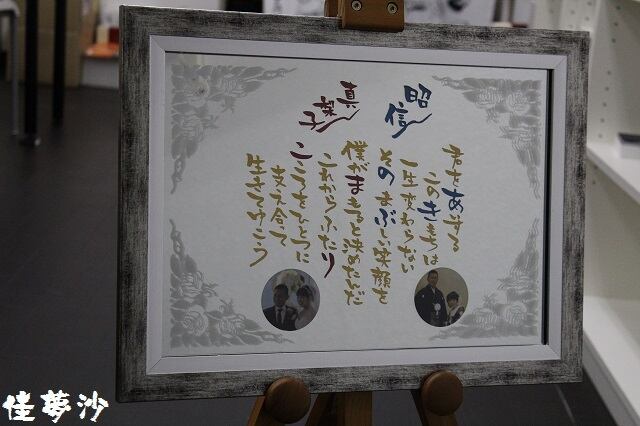 昭信
真梨子
君をあいする
このきもちは
一生変わらない
そのまぶしい笑顔を
僕がまもると決めたんだ
これからふたり
こころをひとつに
支え合って
生きてゆこう
佳夢沙